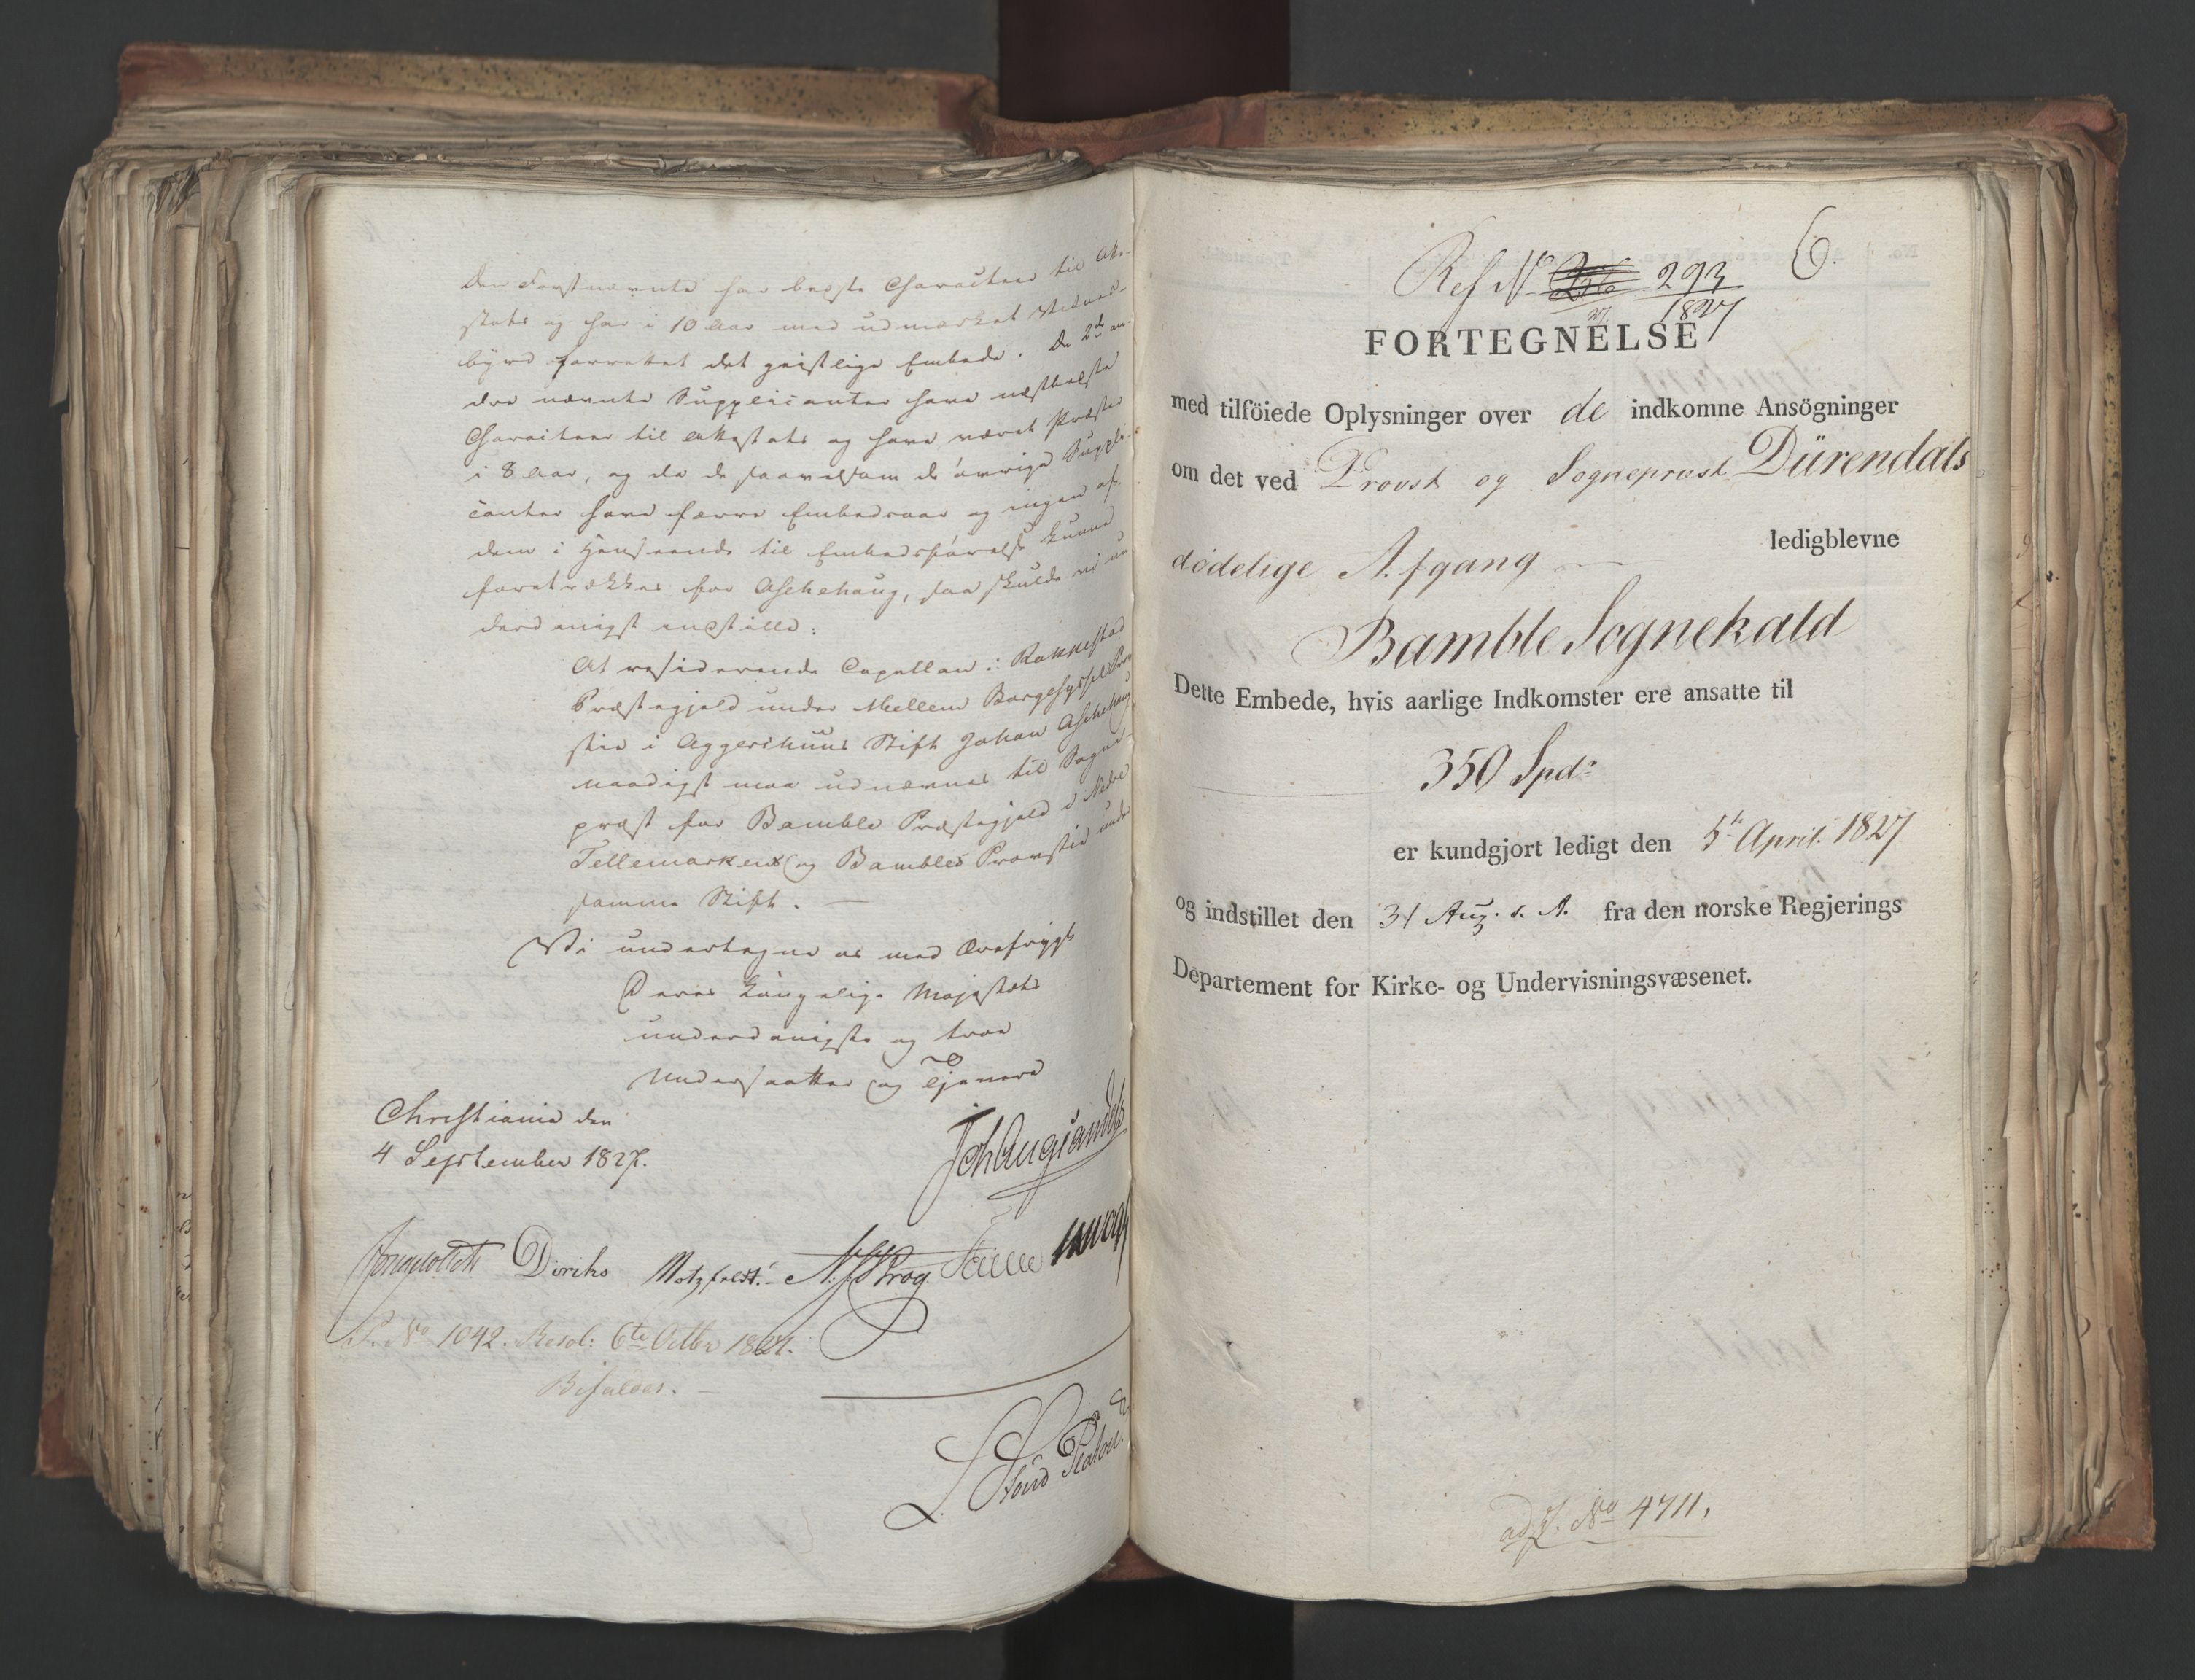 Den Førstnævnte har bedste Charakteer til Atte-
stats og har i 10 Aar med udmærket Vidnes-
byrd forrettet det geistlige Embede. De 2de an-
dre nævnte Supplicanter have næstbedste
Charakteer til Attestats og have været Præster
i 8 Aar, og da de saavelsom de øvrige Suppli-
canter have færre Embedsaar og ingen af
dem i Henseende til Embedsførelse kunne
foretrækkes for Aschehoug, saa skulde vi un-
derdanigst indstille:
At residerende Capellan i Rakkestad
Præstegjeld under Mellem Borgesyssel Prov-
stie i Aggershuus Stift Johan Aschehoug
naadigst maa udnævnes til Sogne-
præst for Bamble Præstegjeld i Nedre
Tellemarkens og Bambles Provstie under
samme Stift. —
Vi undertegne os med Ærefrygt
Deres Kongelige Majestæts
underdanigste og troe
Undersaatter og Tjenere
Christiania den
4 September 1827.
Joh Aug Sandels
Diriks Motzfeldt. Krog
P. No 1042. Resol: 6te Octbr 1827.
Bifaldes. —
6.
Ref No 293
1827
FORTEGNELSE
med tilföiede Oplysninger over de indkomne Ansögninger
om det ved Provst og Sognepræst Dürendals
dødelige Afgang — ledigblevne
Bamble Sognekald
Dette Embede, hvis aarlige Indkomster ere ansatte til
350 Spd:
er kundgjort ledigt den 5te April 1827
og indstillet den 31 Aug. s. A. fra den norske Regjerings
Departement for Kirke- og Undervisningsvæsenet.
ad J. No 4711.